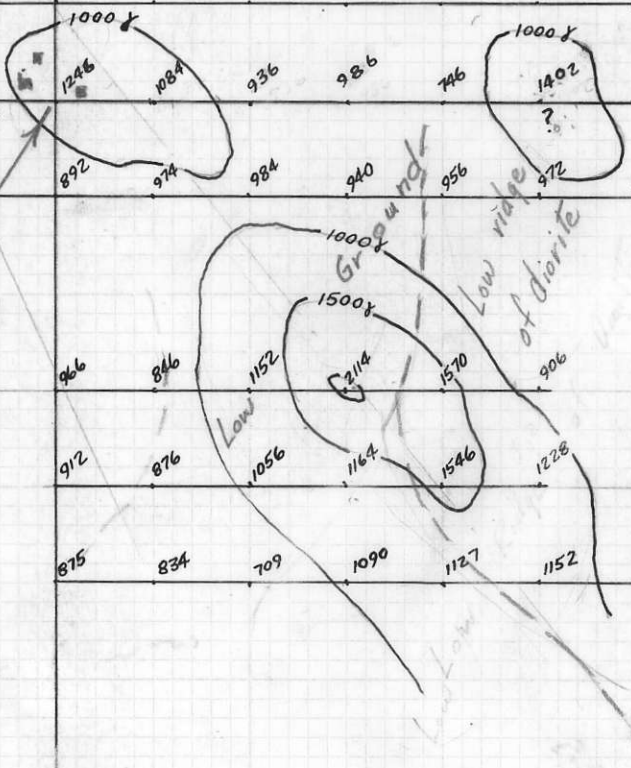 1000γ
1000γ
1246 1084 936 986 746 1402
?
892 974 984 940 956 972
Ground
Low ridge
of diorite
1000γ
1500γ
966 846 1152 2114 1570 906
Low
912 876 1056 1164 1546 1228
875 834 709 1090 1127 1152
Low